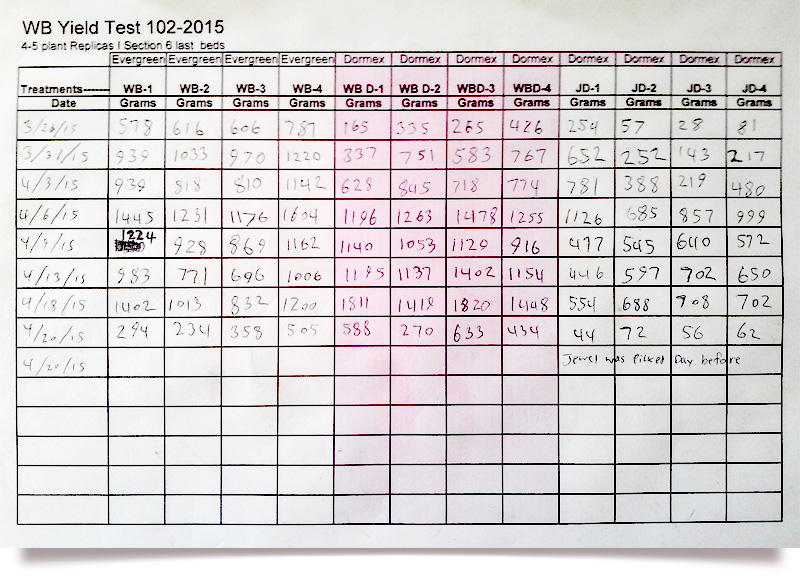 WB Yield Test 102-2015
4-5 plant Replicas I Section 6 last beds
Evergreen Evergreen Evergreen Evergreen Dormex Dormex Dormex Dormex Dormex Dormex Dormex Dormex
Treatments------- WB-1 WB-2 WB-3 WB-4 WB D-1 WB D-2 WBD-3 WBD-4 JD-1 JD-2 JD-3 JD-4
Date Grams Grams Grams Grams Grams Grams Grams Grams Grams Grams Grams Grams
3/26/15 578 616 606 787 165 335 265 426 254 57 28 81
3/31/15 939 1033 970 1220 337 751 583 767 652 252 143 217
4/3/15 939 818 810 1142 628 845 718 774 781 388 219 480
4/6/15 1445 1231 1176 1604 1196 1263 1478 1255 1126 685 857 999
4/9/15 1224 928 869 1162 1140 1053 1129 916 477 545 640 572
4/13/15 983 771 696 1006 1195 1137 1402 1154 446 597 702 650
4/18/15 1402 1013 832 1200 1811 1419 1820 1448 554 688 908 702
4/20/15 294 234 358 505 588 270 633 434 44 72 56 62
4/20/15 Jewel was Picked Day before